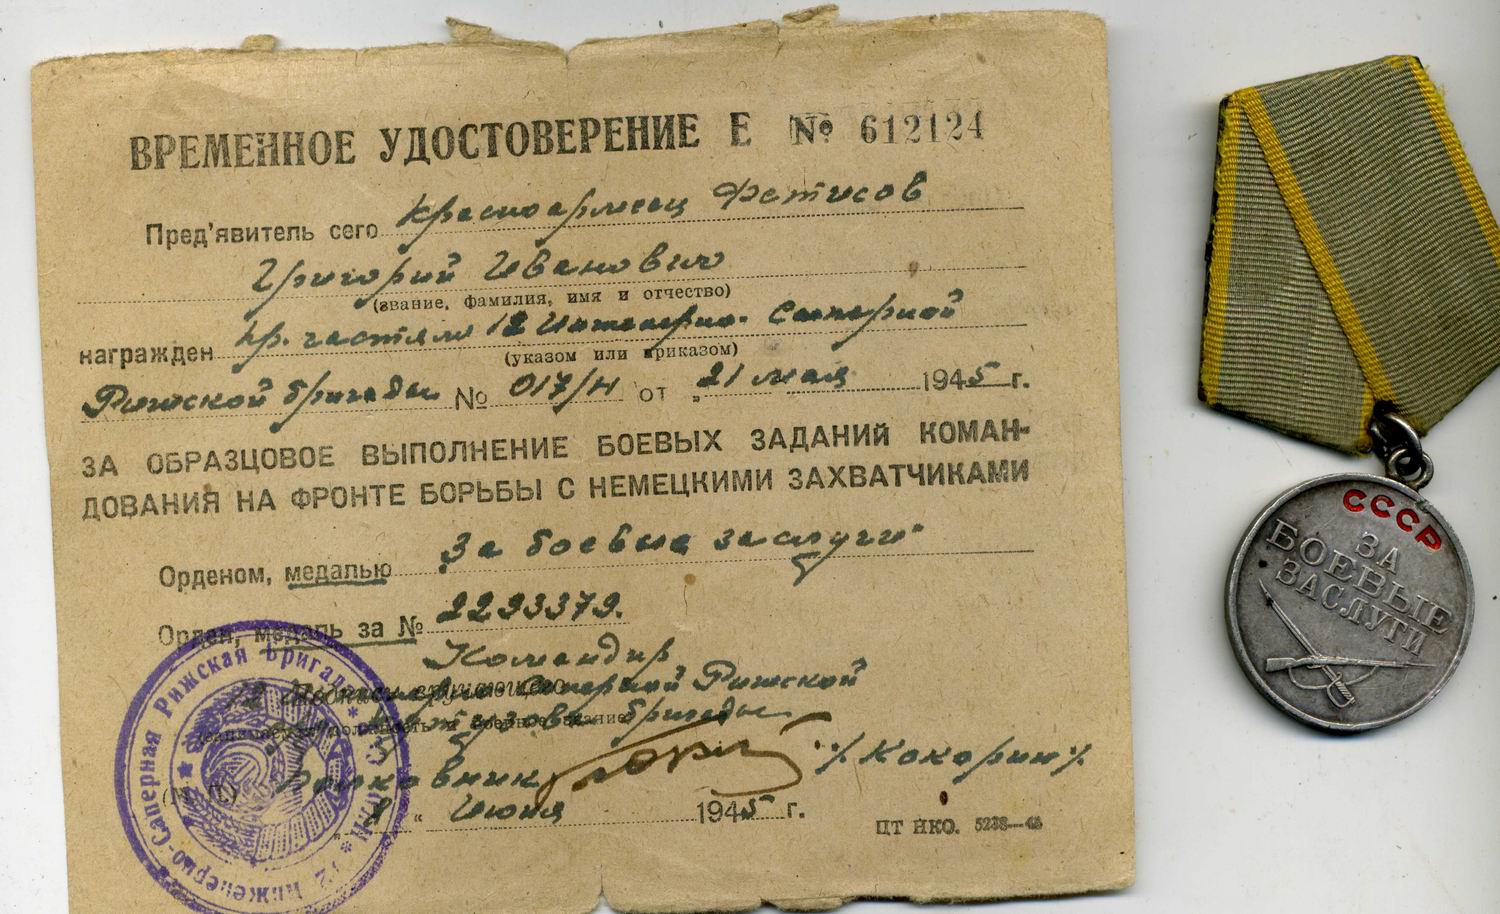 ВРЕМЕННОЕ УДОСТОВЕРЕНИЕ Е № 612124
Пред'явитель сего Красноармеец Фетисов
Григорий Иванович
(звание, фамилия, имя и отчество)
награжден пр. частям 12 Инженерно-Саперной
(указом или приказом)
Рижской бригады № 017/н от "21 мая 1945 г.
ЗА ОБРАЗЦОВОЕ ВЫПОЛНЕНИЕ БОЕВЫХ ЗАДАНИЙ КОМАН-
ДОВАНИЯ НА ФРОНТЕ БОРЬБЫ С НЕМЕЦКИМИ ЗАХВАТЧИКАМИ
Орденом, медалью "За боевые заслуги"
Орден, медаль за № 2293379.
Командир
12 Инженерно-Саперной Рижской
бригады
Полковник /Кокорин/
(М. П.)
"8" Июня 1945 г.
ЦТ НКО. 5238—45
12 Инженерно-Саперная Рижская Бригада * НКО СССР *
СССР
ЗА
БОЕВЫЕ
ЗАСЛУГИ